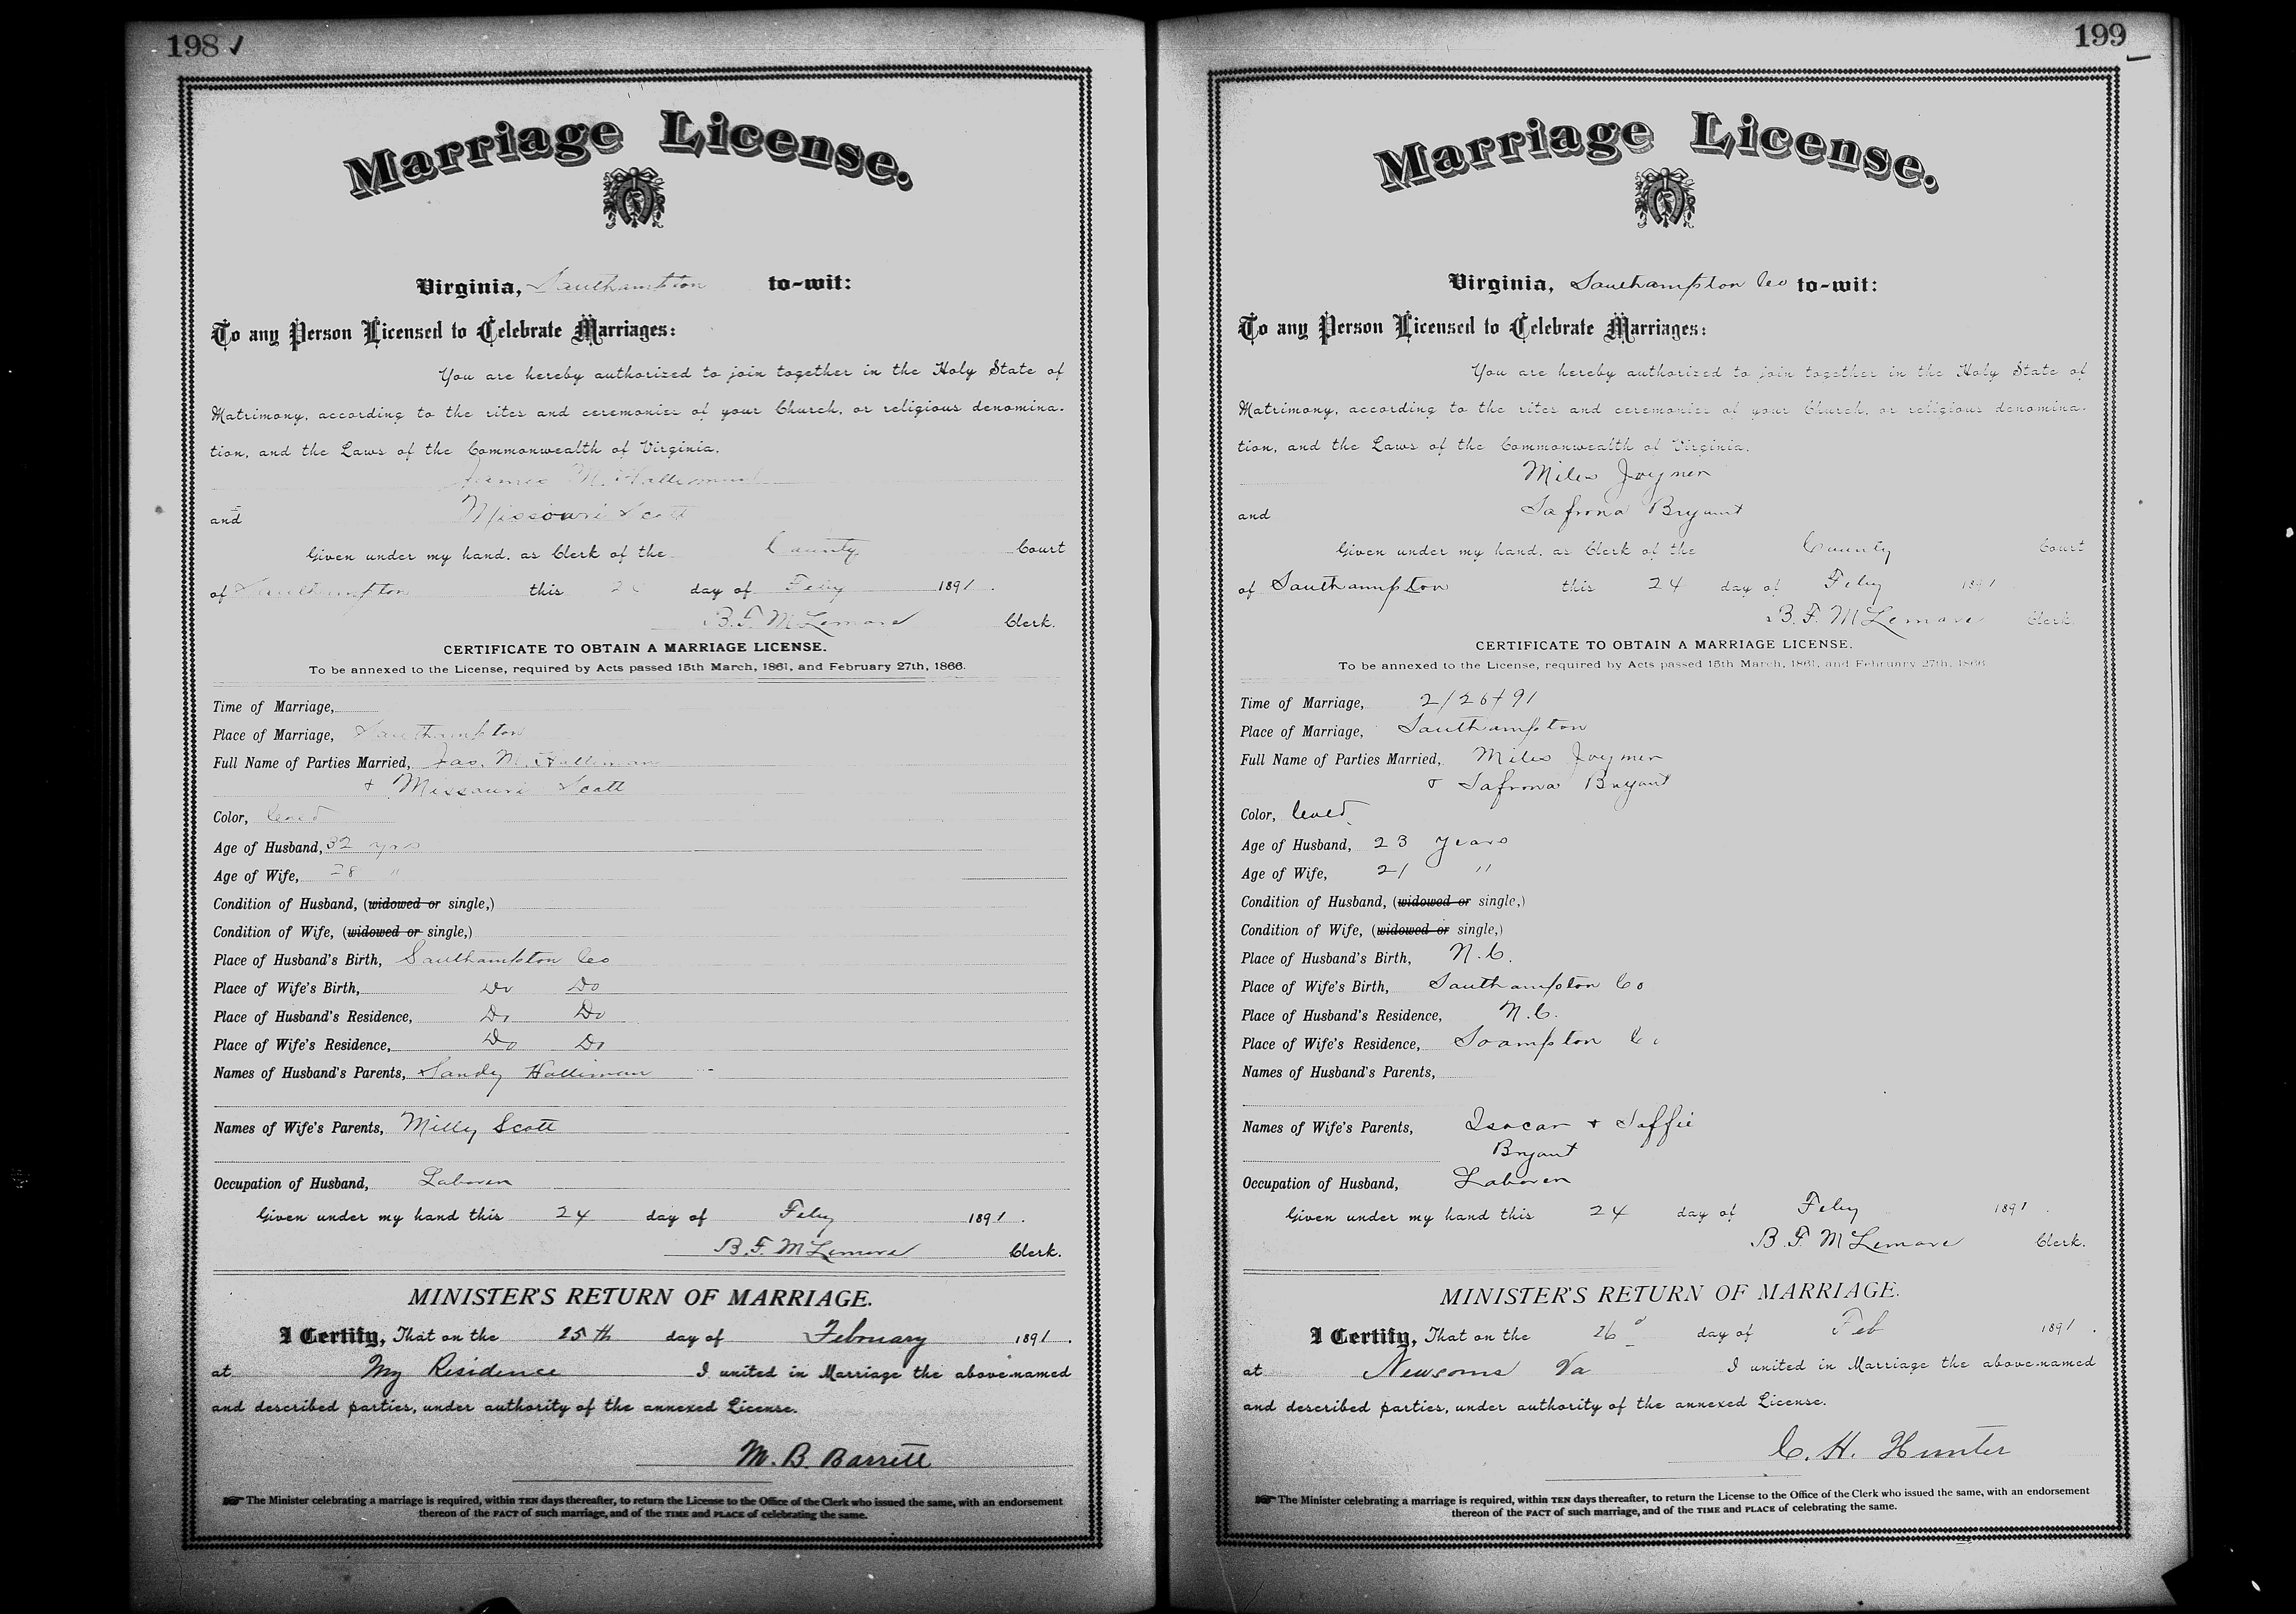 198
Marriage License.
Virginia, Southampton to-wit:
To any Person Licensed to Celebrate Marriages:
You are hereby authorized to join together in the Holy State of
Matrimony, according to the rites and ceremonies of your Church, or religious denomina-
tion, and the Laws of the Commonwealth of Virginia.
James M.
and Missouri Scott
Given under my hand, as Clerk of the County Court
of Southampton this day of Feby 1891.
B. F. McLemore Clerk.
CERTIFICATE TO OBTAIN A MARRIAGE LICENSE.
To be annexed to the License, required by Acts passed 15th March, 1861, and February 27th, 1866.
Time of Marriage,
Place of Marriage, Southampton
Full Name of Parties Married, Jas. M. Halliman
+ Missouri Scott
Color, Cold
Age of Husband, 32 yrs
Age of Wife, 28 "
Condition of Husband, (widowed or single,)
Condition of Wife, (widowed or single,)
Place of Husband's Birth, Southampton Co
Place of Wife's Birth, Do Do
Place of Husband's Residence, Do Do
Place of Wife's Residence, Do Do
Names of Husband's Parents, Sandy Halliman
Names of Wife's Parents, Milly Scott
Occupation of Husband, Laborer
Given under my hand this 24 day of Feby 1891.
B. F. McLemore Clerk.
MINISTER'S RETURN OF MARRIAGE.
I Certify, That on the 25th day of February 1891.
at My Residence I united in Marriage the above-named
and described parties, under authority of the annexed License.
M. B. Barrett
The Minister celebrating a marriage is required, within TEN days thereafter, to return the License to the Office of the Clerk who issued the same, with an endorsement
thereon of the FACT of such marriage, and of the TIME and PLACE of celebrating the same.
199
Marriage License.
Virginia, Southampton Co to-wit:
To any Person Licensed to Celebrate Marriages:
You are hereby authorized to join together in the Holy State of
Matrimony, according to the rites and ceremonies of your Church, or religious denomina-
tion, and the Laws of the Commonwealth of Virginia.
Miles Joyner
and Safrona Bryant
Given under my hand, as Clerk of the County Court
of Southampton this 24 day of Feby 1891
B. F. McLemore Clerk.
CERTIFICATE TO OBTAIN A MARRIAGE LICENSE.
To be annexed to the License, required by Acts passed 15th March, 1861, and February 27th, 1866
Time of Marriage, 2/26/91
Place of Marriage, Southampton
Full Name of Parties Married, Miles Joyner
& Safrona Bryant
Color, Cold
Age of Husband, 23 years
Age of Wife, 21 "
Condition of Husband, (widowed or single,)
Condition of Wife, (widowed or single,)
Place of Husband's Birth, N.C.
Place of Wife's Birth, Southampton Co
Place of Husband's Residence, N.C.
Place of Wife's Residence, Soampton Co
Names of Husband's Parents,
Names of Wife's Parents, + Saffie
Bryant
Occupation of Husband, Laborer
Given under my hand this 24 day of Feby 1891.
B. F. McLemore Clerk.
MINISTER'S RETURN OF MARRIAGE.
I Certify, That on the 26 day of Feb 1891.
at Newsoms Va I united in Marriage the above-named
and described parties, under authority of the annexed License.
C. H. Hunter
The Minister celebrating a marriage is required, within TEN days thereafter, to return the License to the Office of the Clerk who issued the same, with an endorsement
thereon of the FACT of such marriage, and of the TIME and PLACE of celebrating the same.